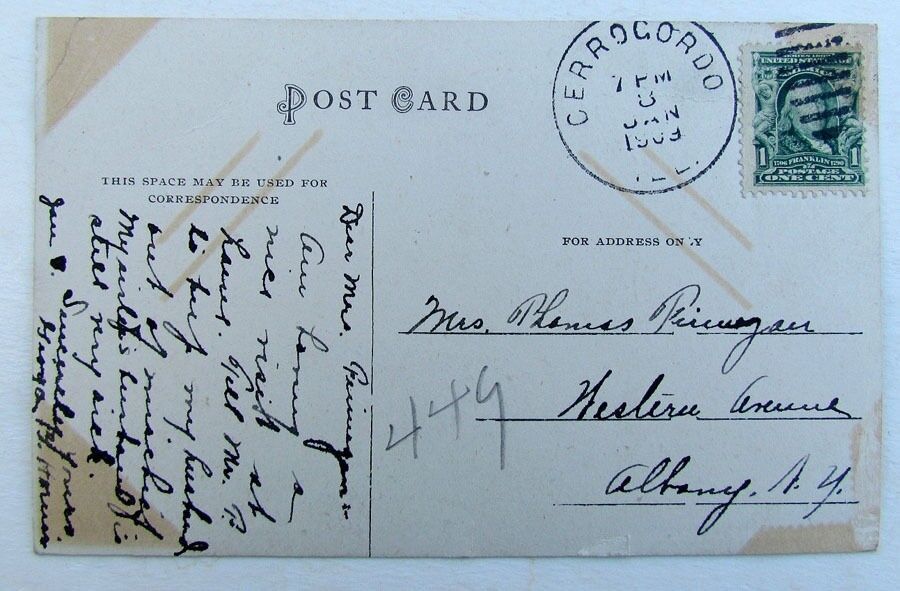 POST CARD
CERROGORDO
7 PM
8
JAN
1909
ILL.
SERIES 1902
UNITED STATES OF
AMERICA
1706 FRANKLIN 1790
1
1
POSTAGE
ONE CENT
THIS SPACE MAY BE USED FOR
CORRESPONDENCE
FOR ADDRESS ONLY
Dear Mrs. Finnegan-
Am having a
nice visit at
home. Tell Mr. F.
to keep my husband
out of mischief
My sister's husband is
still very sick.
Jan 8. Sincerely Yours.
Mrs. Thomas Finnegan
Western Avenue
Albany, N.Y.
449